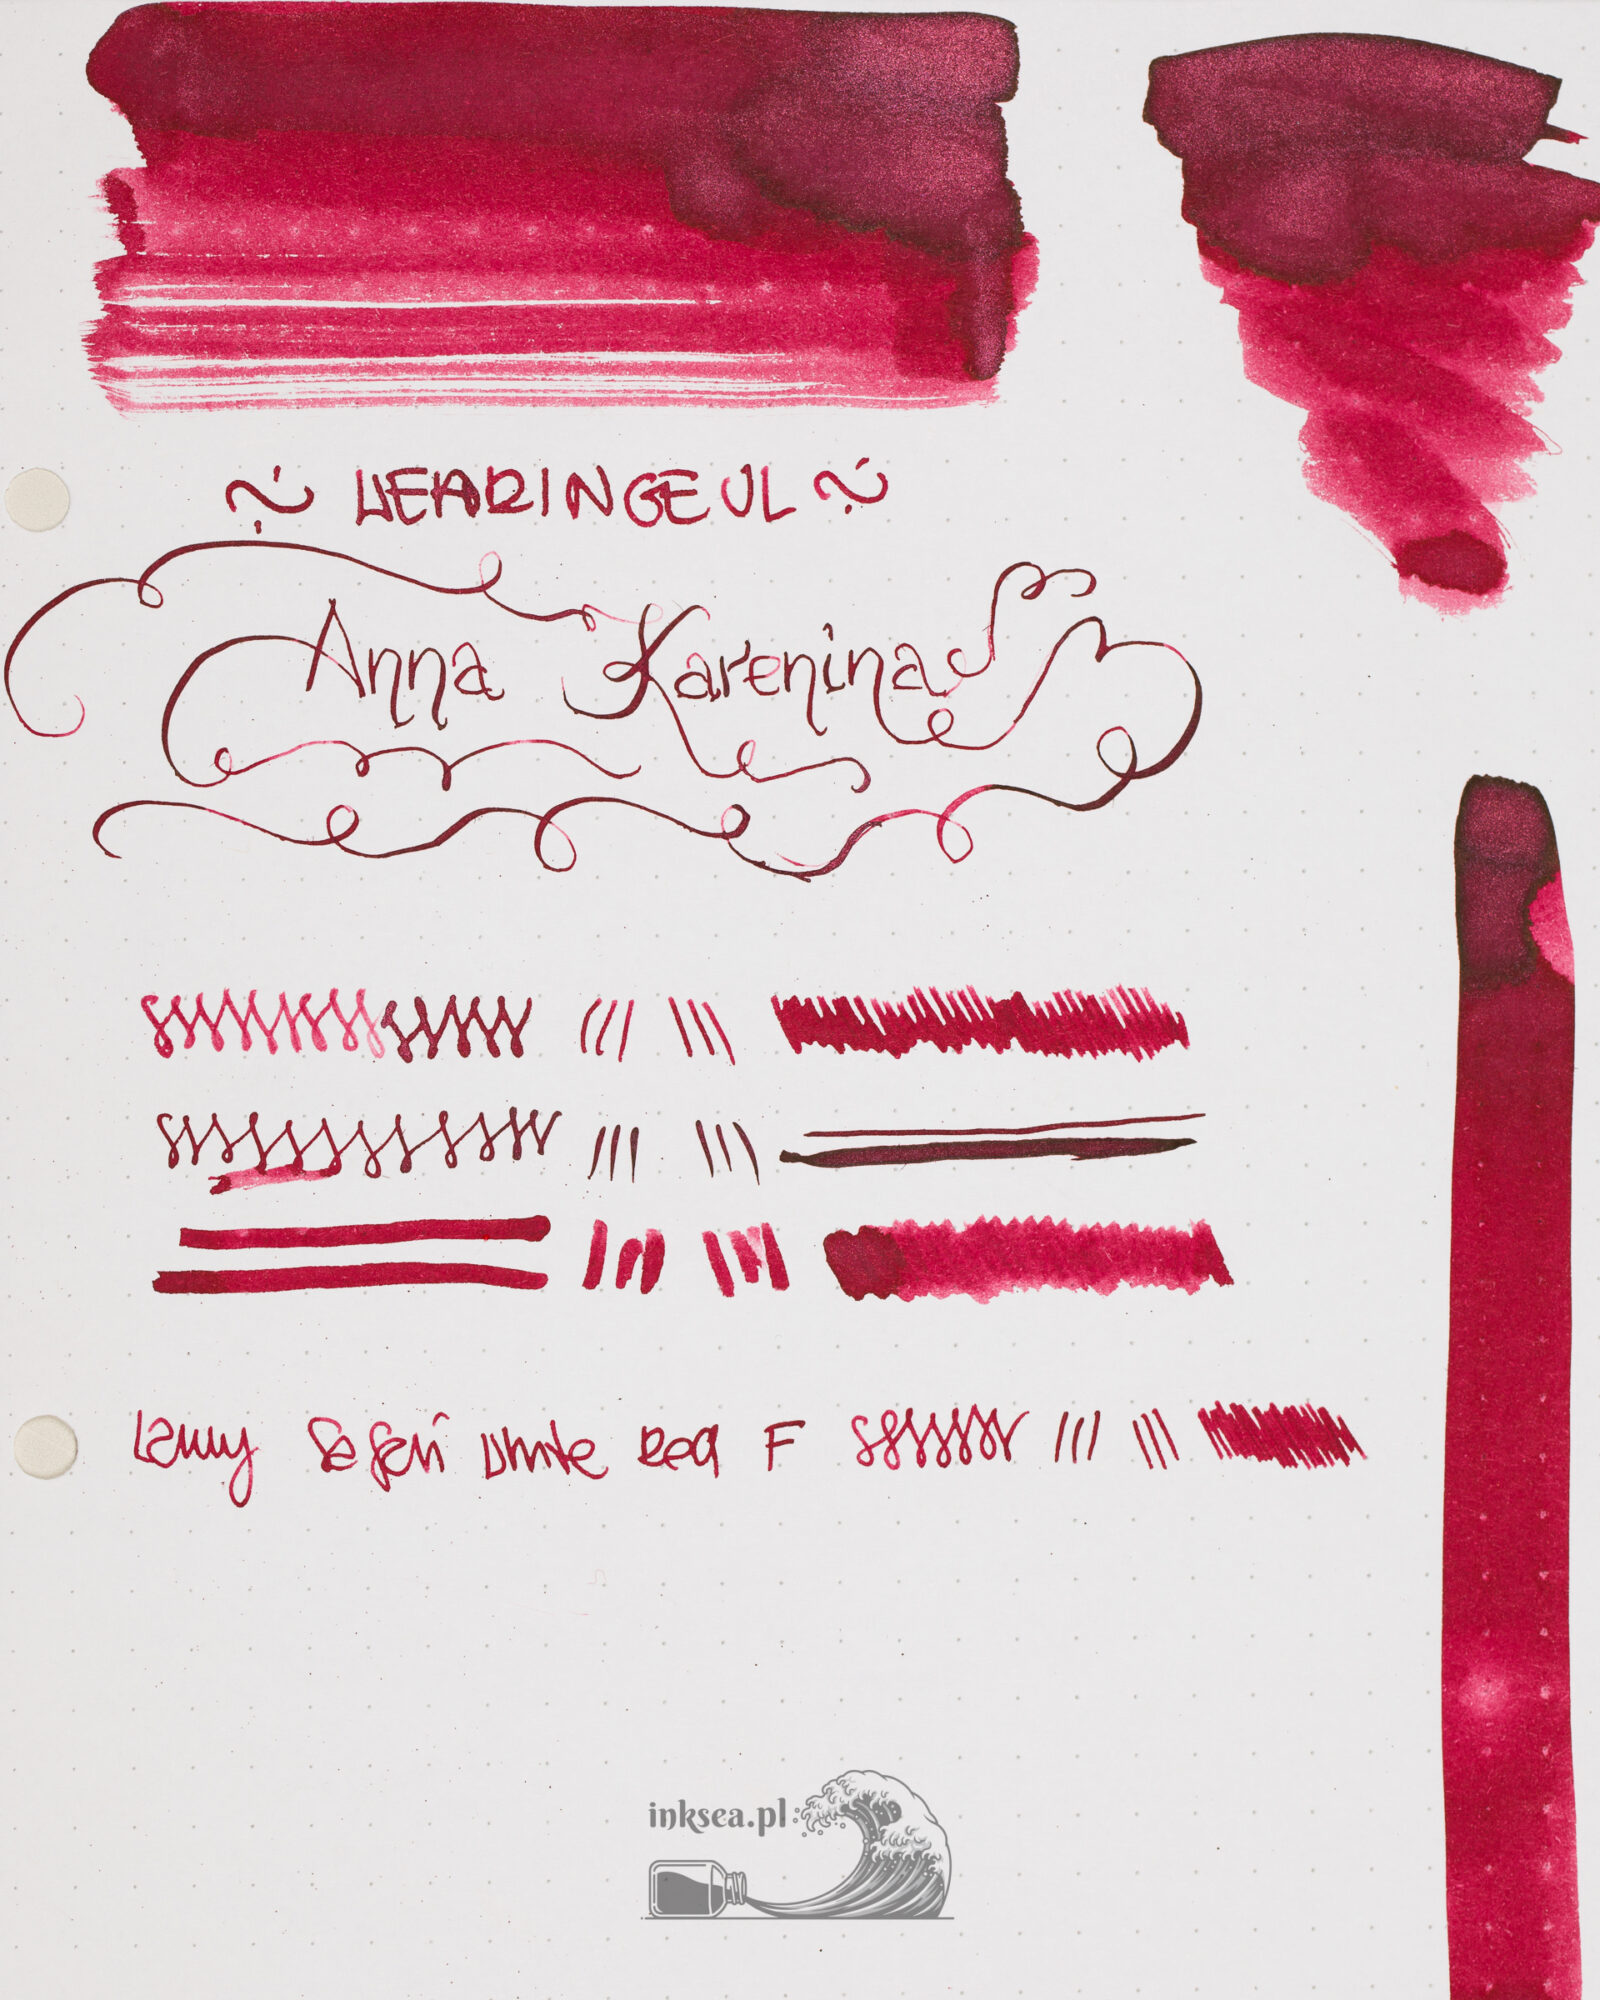 WEARINGEUL
Anna Karenina
Lamy Safari White Red F
inksea.pl